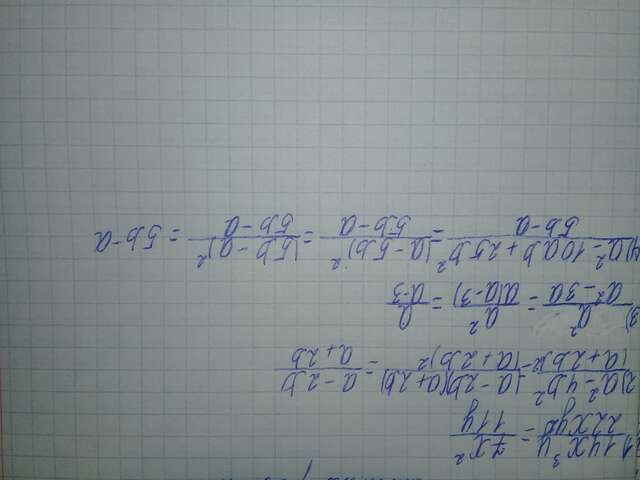 1) 14x³y / 22xy² = 7x² / 11y
2) a² - 4b² / (a + 2b)² = (a - 2b)(a + 2b) / (a + 2b)² = a - 2b / a + 2b
3) a² / a² - 3a = a² / a(a - 3) = a / a - 3
4) a² - 10ab + 25b² / 5b - a = (a - 5b)² / 5b - a = (5b - a)² / 5b - a = 5b - a